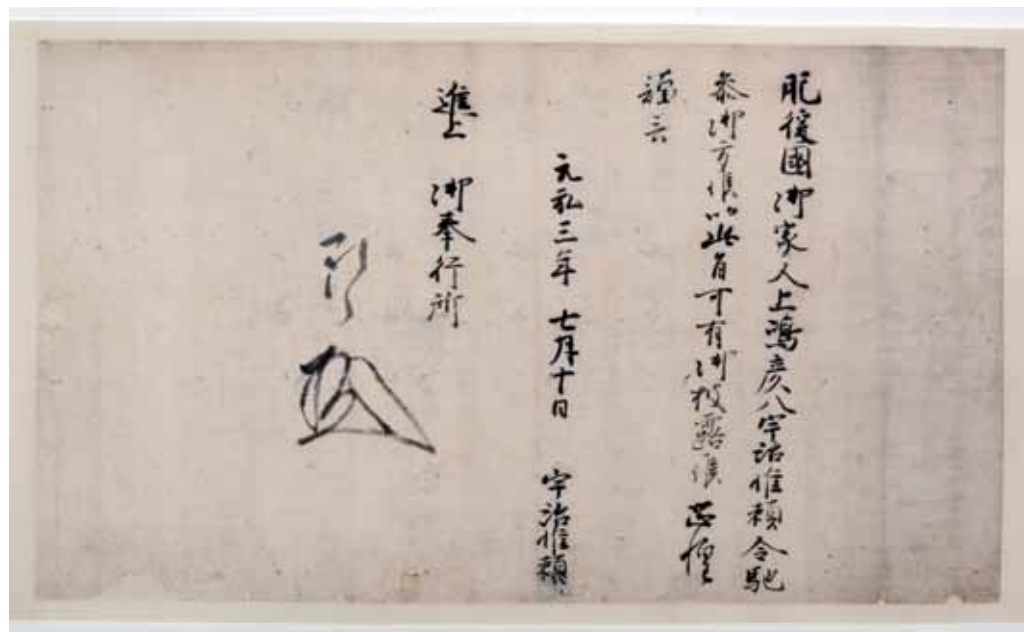 肥後國御家人上嶋彦八宇治惟頼令馳
参御方候以此旨可有御披露候恐惶
謹言
元弘三年 七月十日 宇治惟頼
進上 御奉行所